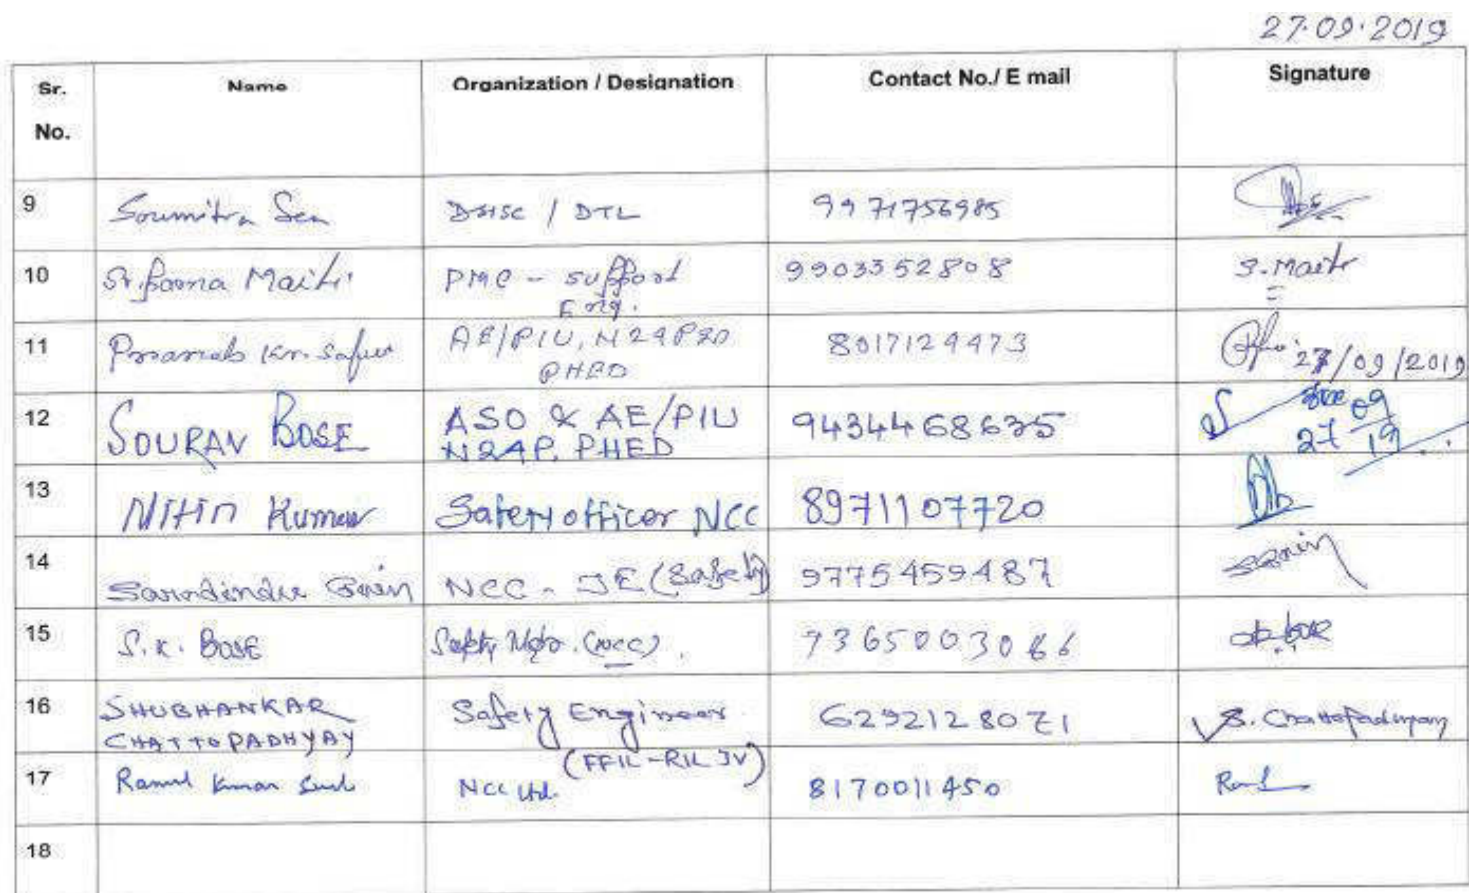 27.09.2019
Sr. No. Name Organization / Designation Contact No./ E mail Signature
9 Soumitra Sen DSISC / DTL 9971756985
10 Maiti PMC - Support Eng. 9903352808 S. Maiti
11 Kr. AE/PIU, PHED 8017129473 27/09/2019
12 SOURAV BOSE ASO & AE/PIU N24P, PHED 9434468635 27 09 19
13 Nitin Kumar Safety officer NCC 8971107720
14 Saradindu NCC - JE (Safety) 9775459487
15 S. K. BOSE Safety Mgr. (NCC). 7365003066
16 SHUBHANKAR CHATTOPADHYAY Safety Engineer (FFIL-RIL JV) 6292128071 S. Chattopadhyay
17 Kumar NCC Ltd. 8170011450
18